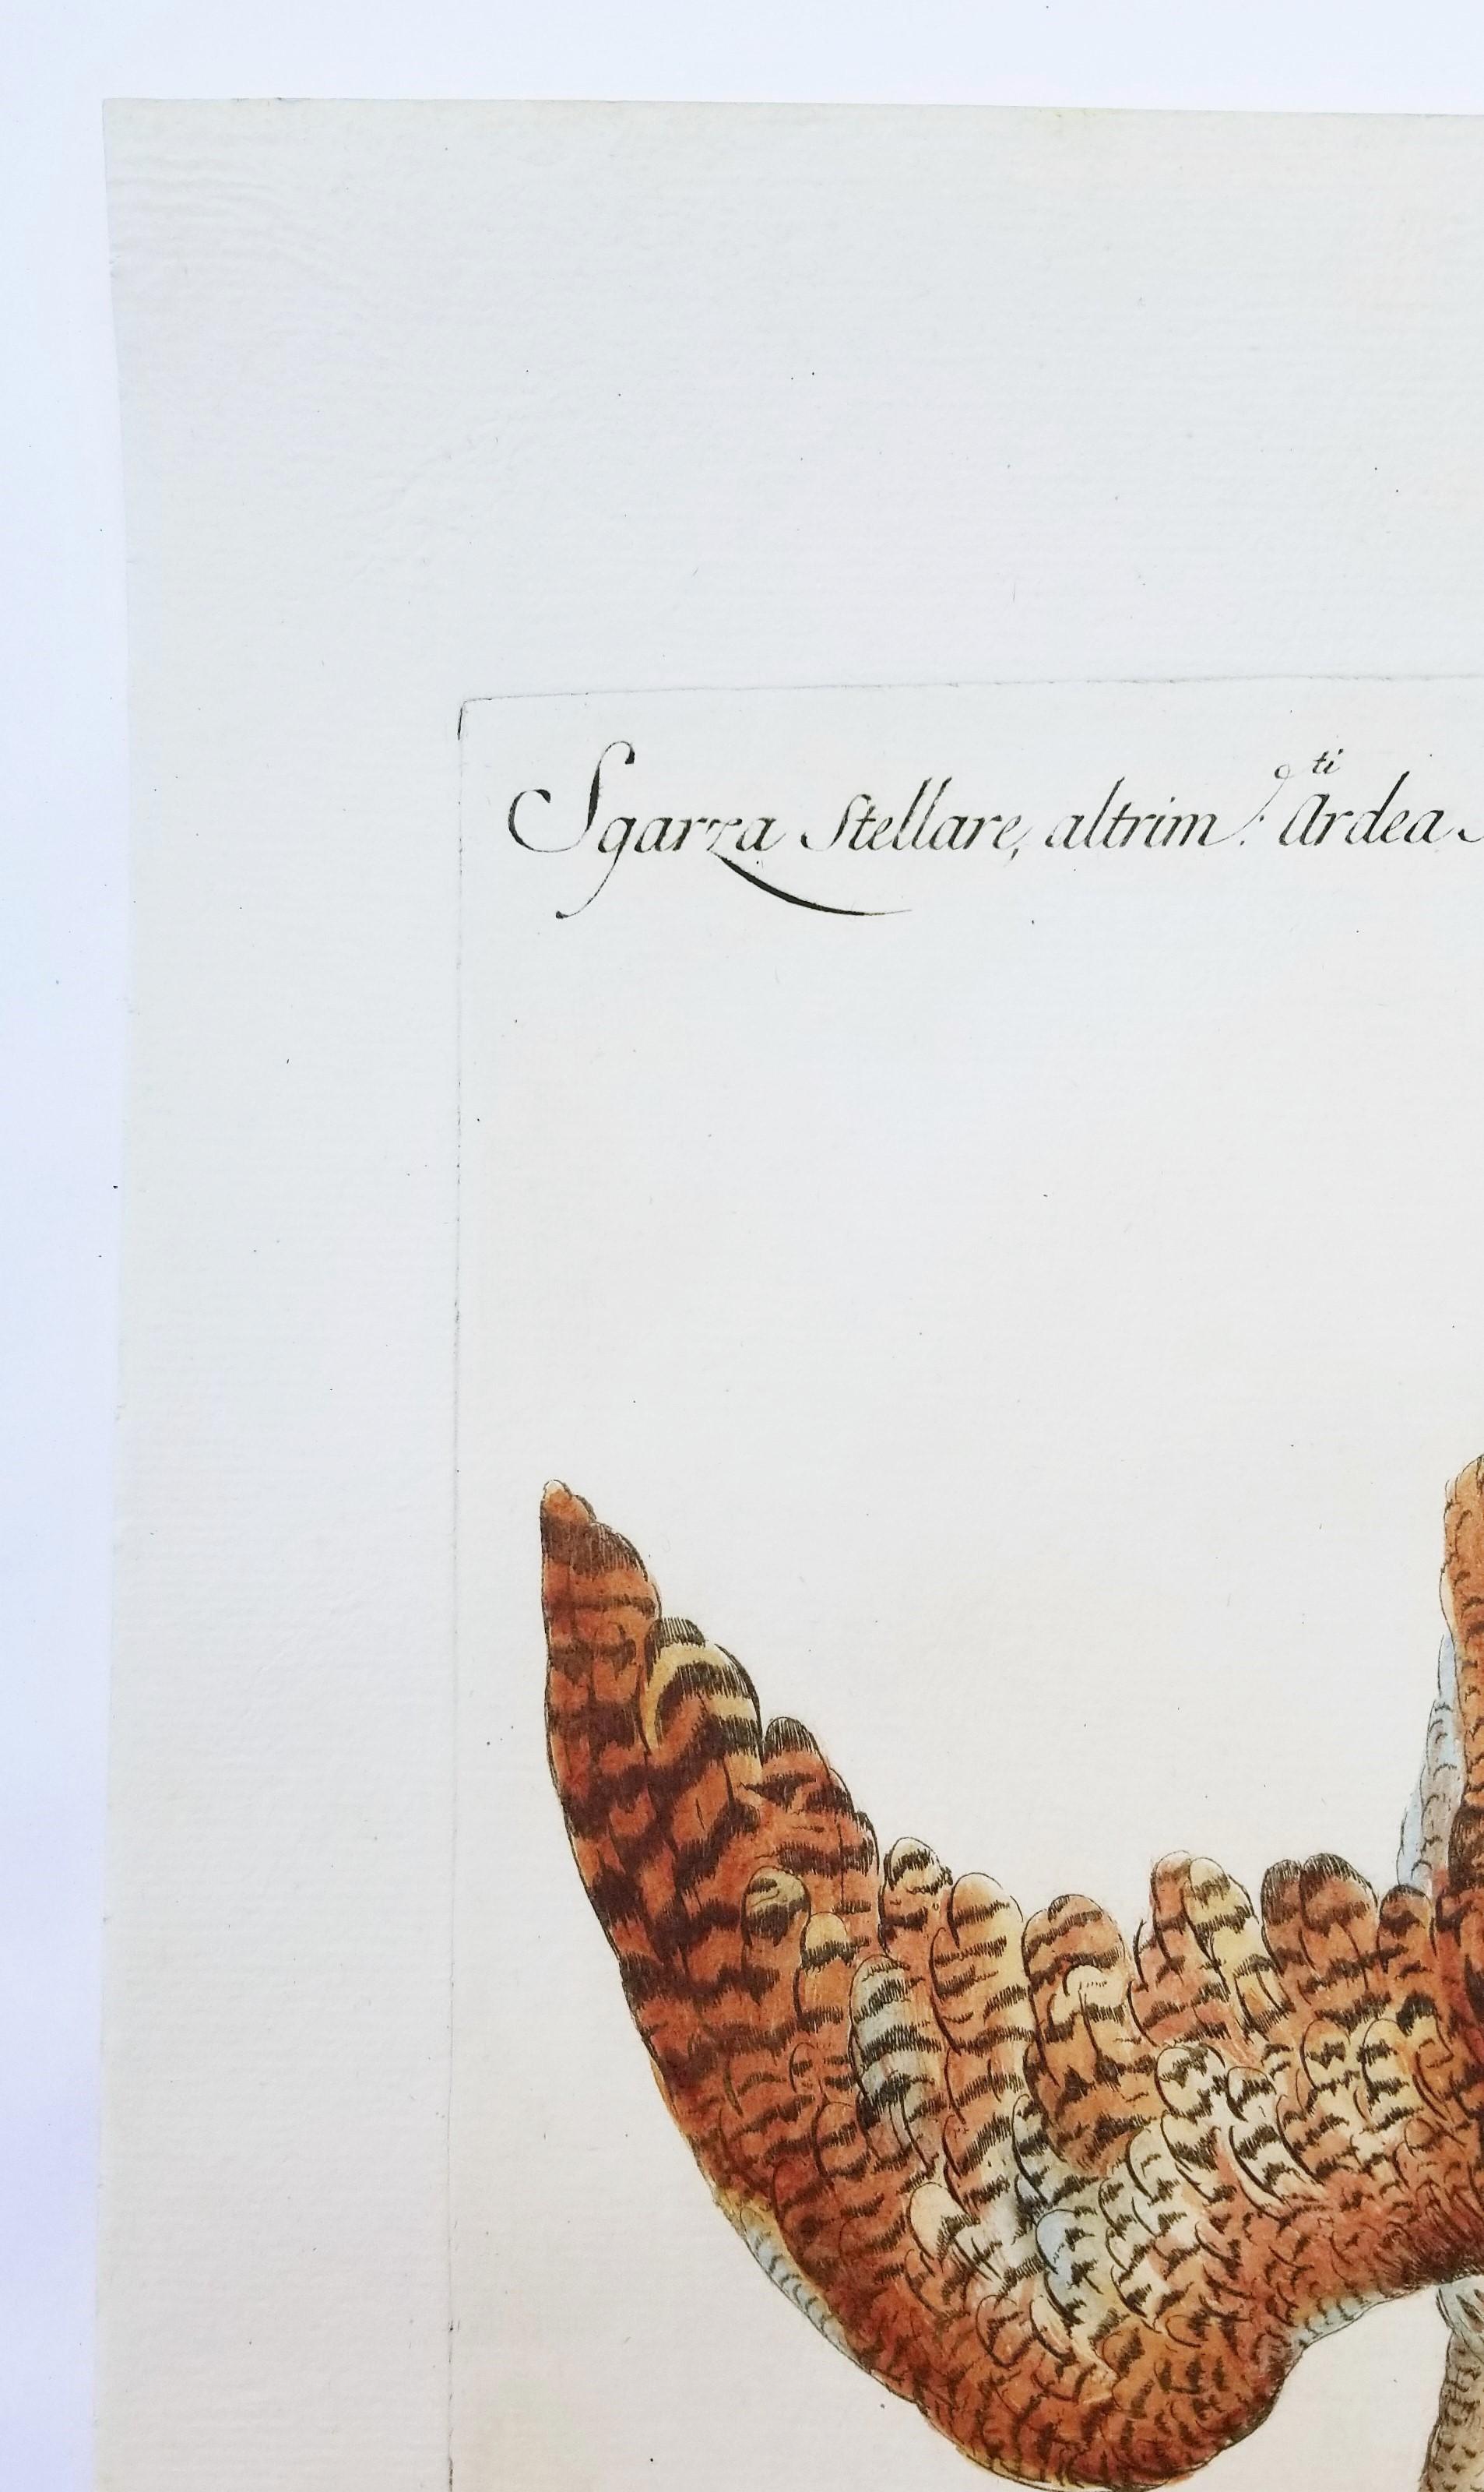 Sgarza Stellare, altrim.ti Ardea